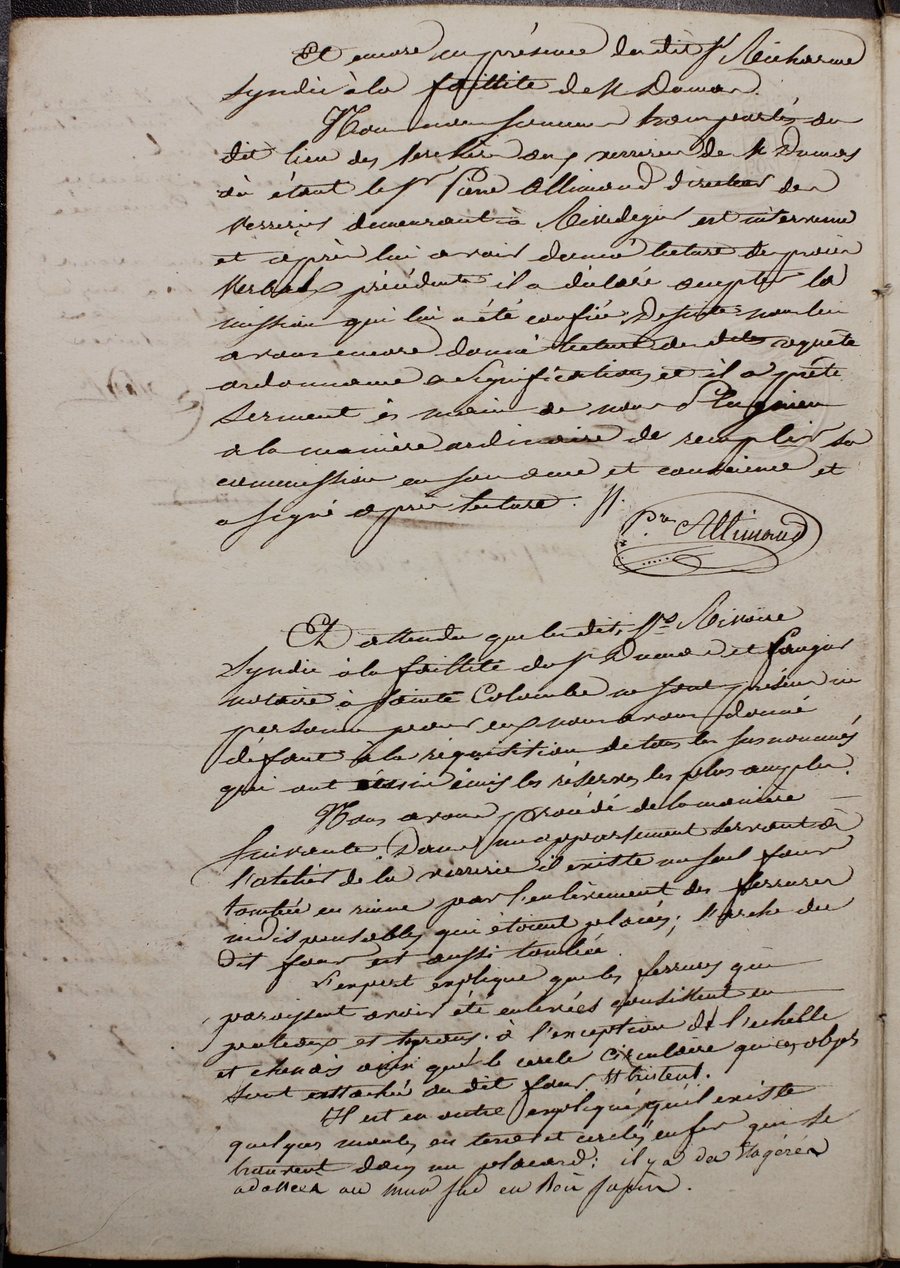 Et encore en présence du dit Sr Micharme
Syndic à la faillite de Sr Dumas.
Nous nous sommes transportés au
dit lieu des aux verreries de Mr Dumas
où étant le Sr Pierre Allimand directeur des
verreries demeurant à Rivedegier est intervenu
et après lui avoir donné lecture du procès
verbal précédent il a déclaré accepter la
mission qui lui a été confiée De suite nous lui
avons encore donné lecture des dites requête
ordonnance & signification, et il a prêté
serment ès mains de nous
à la manière ordinaire de remplir sa
commission en son ame et conscience et
a signé après lecture.
Pre Allimand
Et attendu que les dits Srs
Syndic à la faillite du Sr Dumas et
notaire à Sainte Colombe ne sont présens en
personne pour eux nous avons donné
défaut à la réquisition de tous les susnommés
qui ont aussi émis les réserves les plus amples.
Nous avons procédé de la manière
suivante. Dans un appartement servant à
l'atelier de la verrerie il existe un seul four
tombée en ruine par l'enlèvement des ferrures
indispensables qui étoient placées; l'arche du
dit four est aussi tombée.
L'expert explique que les ferrures qui
paroissent avoir été enlevées consistent en
et à l'exception de l'echelle
et chenets ainsi que le cercle circulaire qui ces objets
sont attachés au dit four
Il est en outre expliqué qu'il existe
quelques moules en terre et cerclés en fer qui se
trouvent dans un placard; il y a des étagères
adossées au mur en bois sapin.